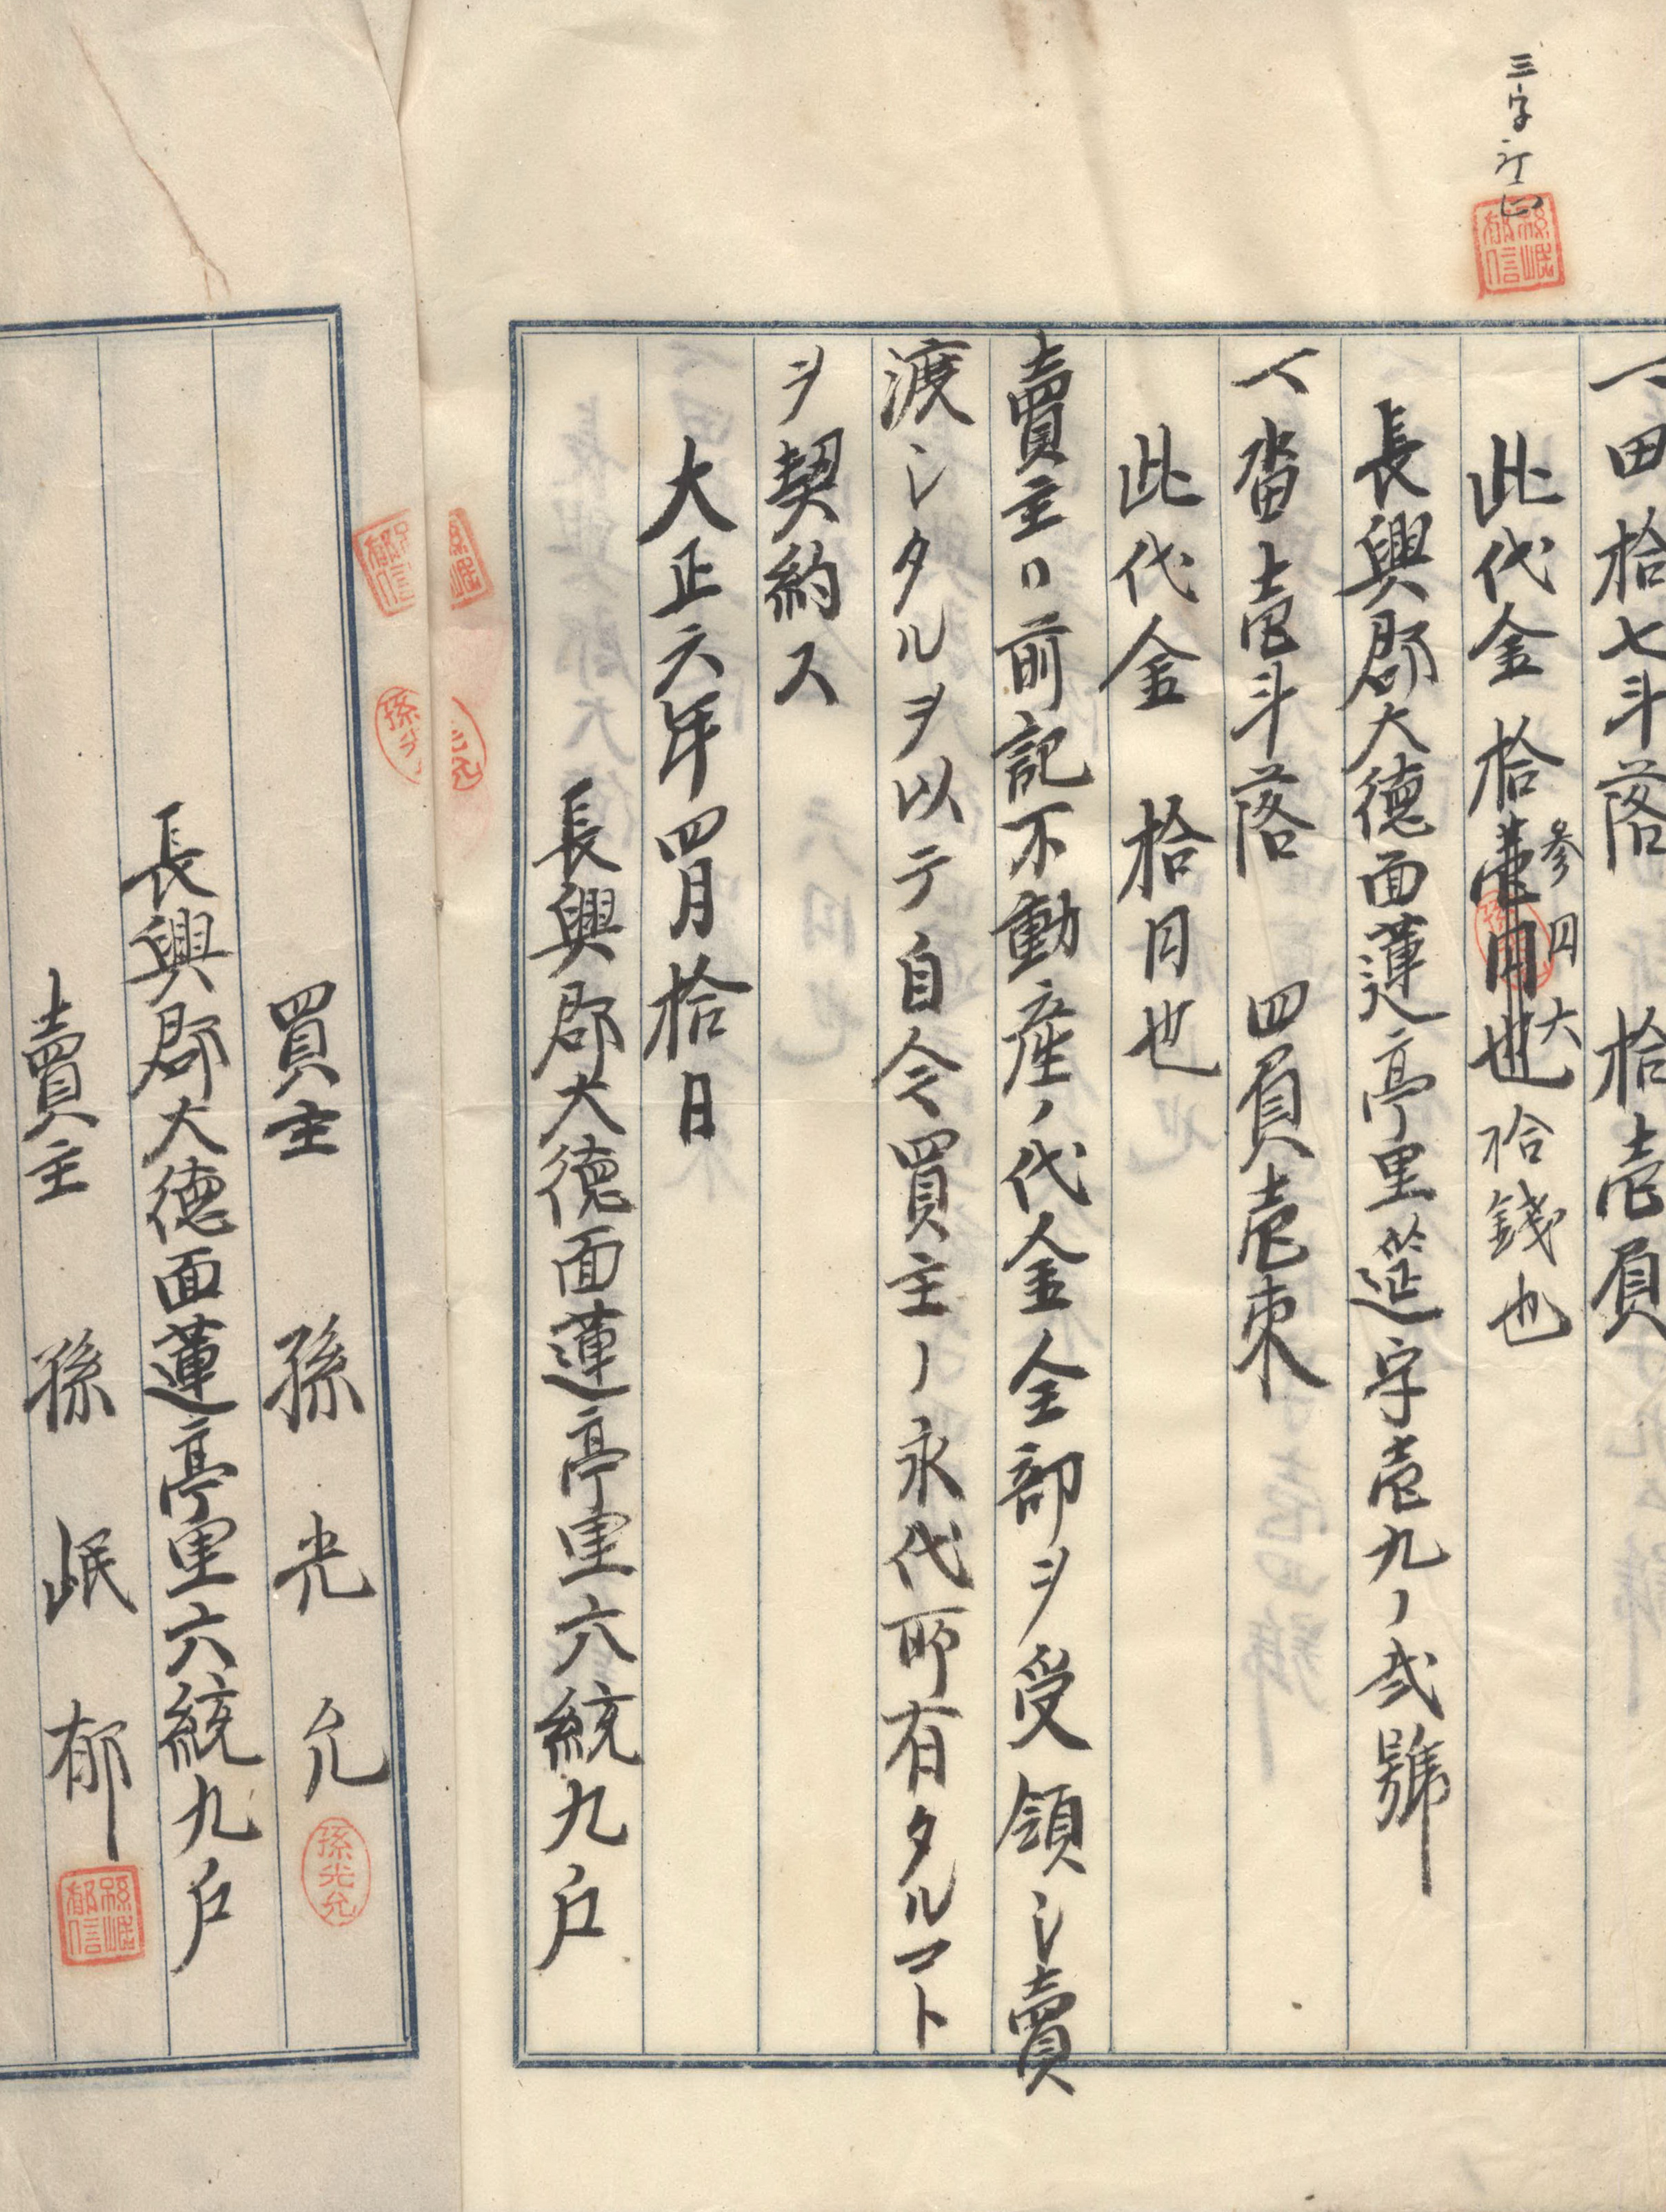 三字訂正
一田拾七斗落 拾壱負
此代金拾壱円也拾錢也
参円六
長興郡大德面蓮亭里筵字壱九ノ弐號
一畓壱斗落 四負壱束
此代金 拾円也
賣主ハ前記不動産ノ代金全部ヲ受領シ賣
渡シタルヲ以テ自今買主ノ永代所有タルコト
ヲ契約ス
大正六年四月拾日
長興郡大德面蓮亭里六統九戶
買主 孫光允
孫光允
長興郡大德面蓮亭里六統九戶
賣主 孫岷郁
孫岷郁信